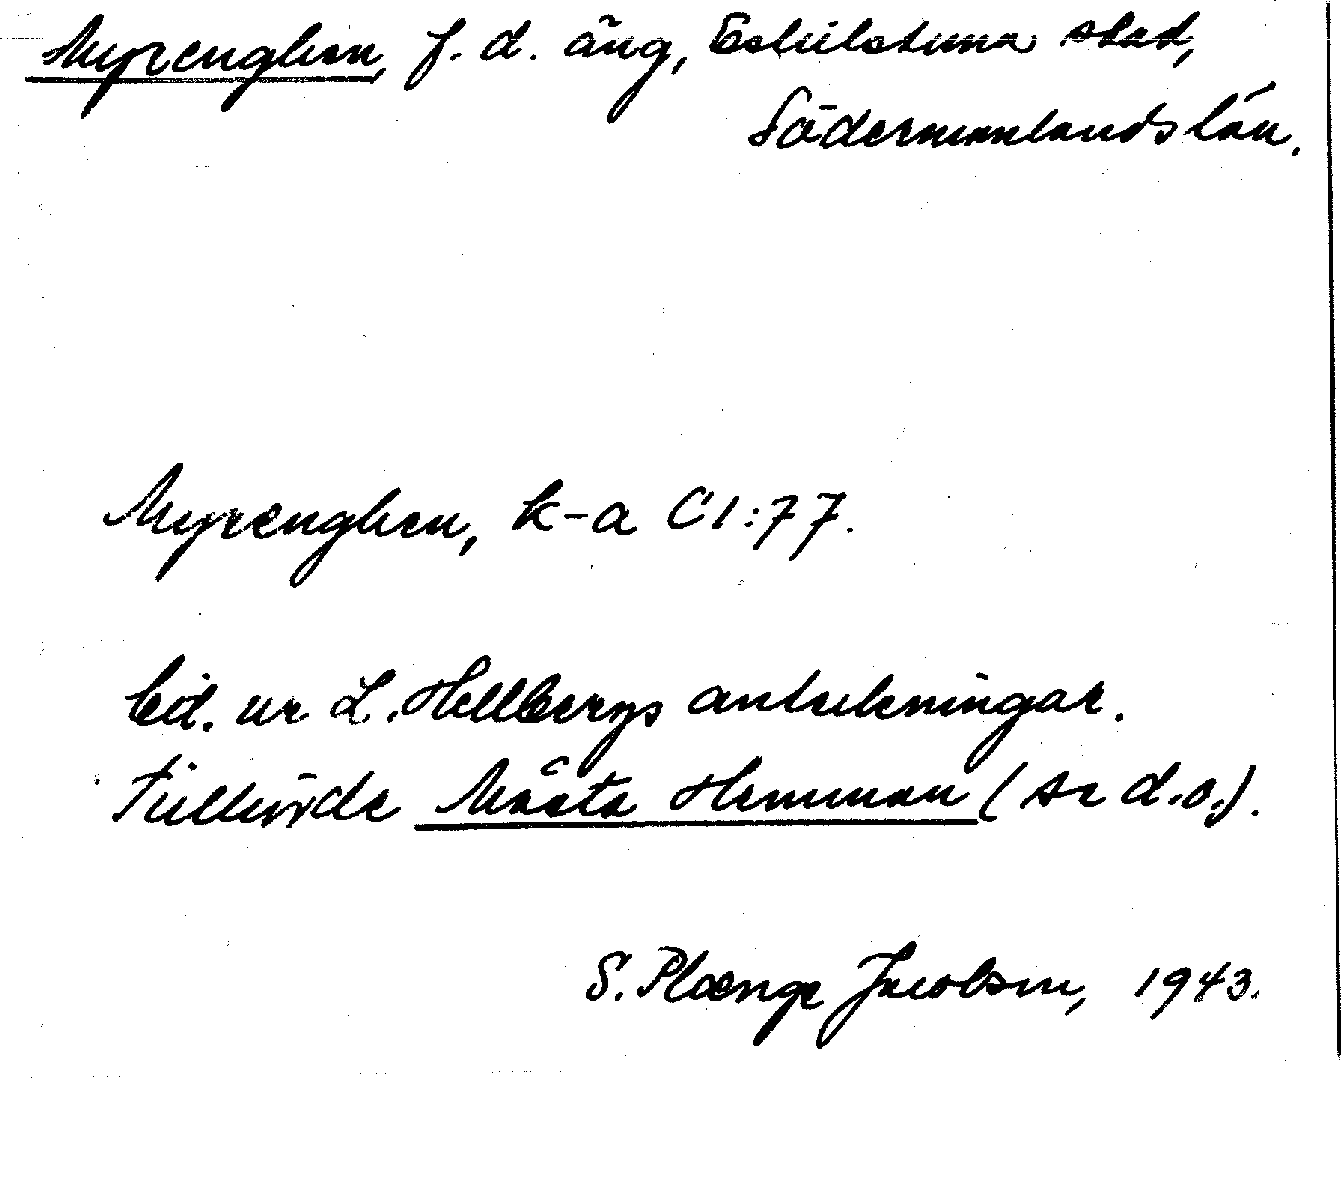 Myrenghen, f. d. äng, Eskilstuna stad,
Södermanlands län.
Myrenghen, k-a C I:77.
Cit. ur L. Hellbergs anteckningar.
Tillhörde Måsta Hemman (se d.o.).
S. Plænge Jacobson, 1943.